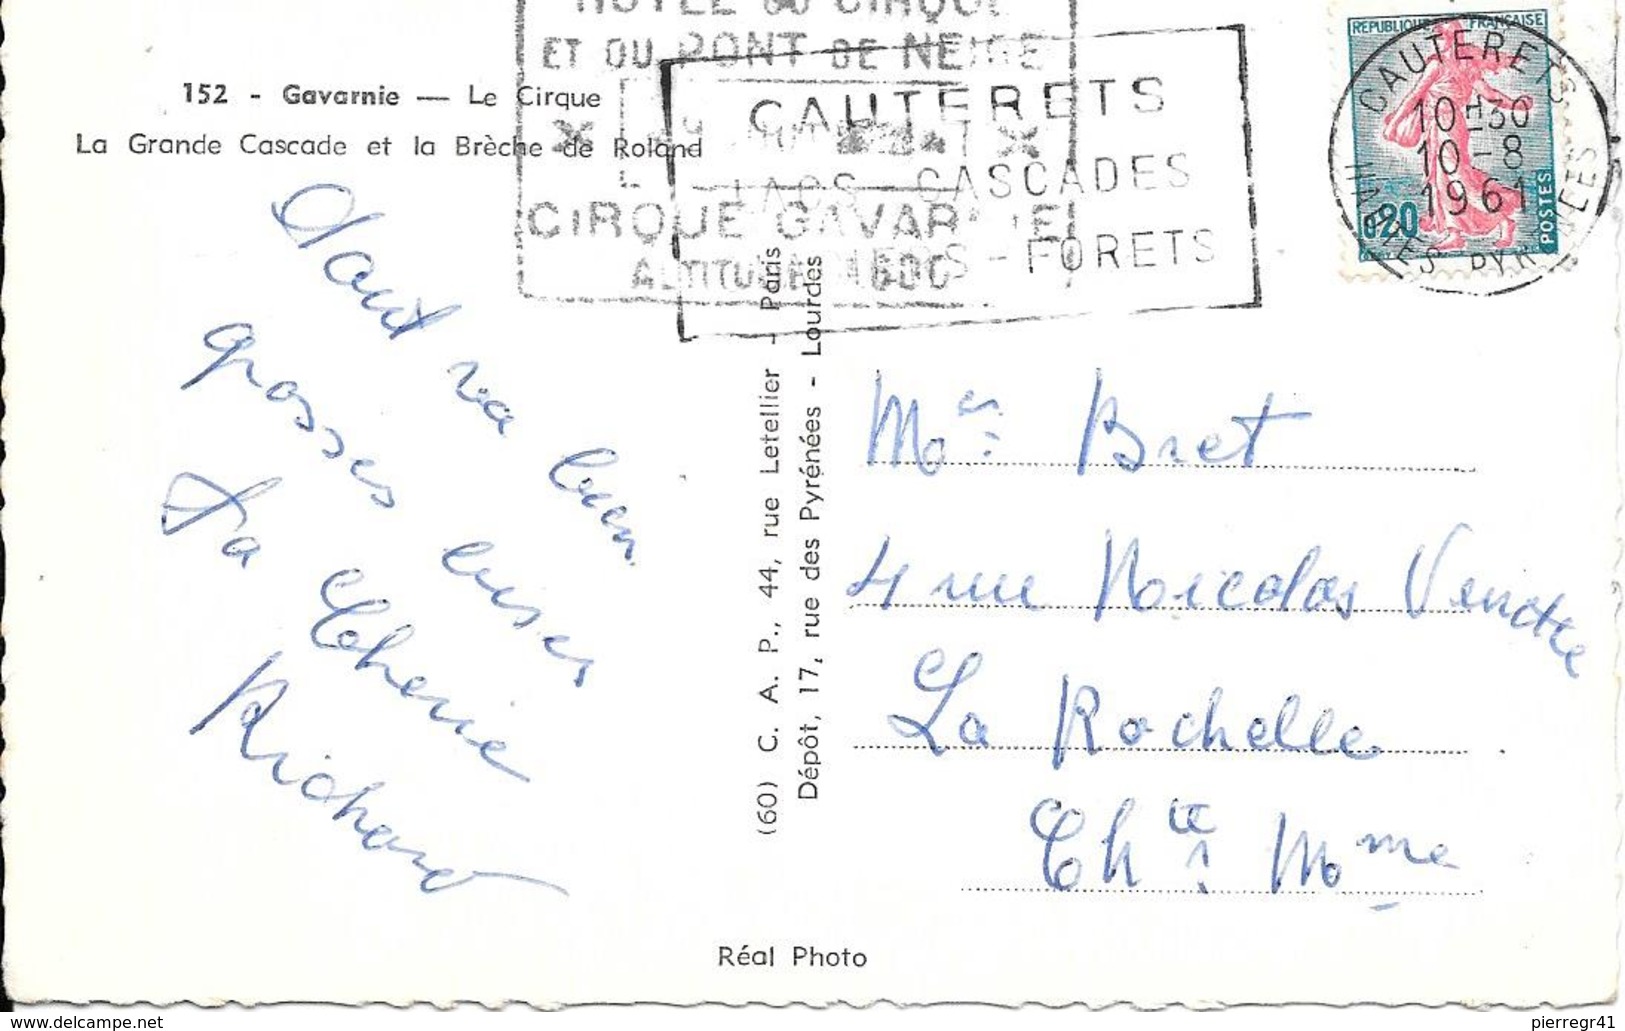 HOTEL DU CIRQUE
ET DU PONT DE NEIGE
CIRQUE GAVARNIE
ALTITUDE 1600
CAUTERETS
LACS - CASCADES
- FORETS
REPUBLIQUE FRANÇAISE
0,20
POSTES
CAUTERETS
10H30
10-8
1961
HAUTES PYRENEES
152 - Gavarnie — Le Cirque
La Grande Cascade et la Brèche de Roland
Tout va bien
grosses bises
Ta Cherie
Richard
(60) C. A. P., 44, rue Letellier - Paris
Dépôt, 17, rue des Pyrénées - Lourdes
Mr Bret
4 rue Nicolas Venette
La Rochelle
Chte Mme
Réal Photo
delcampe.net
pierregr41